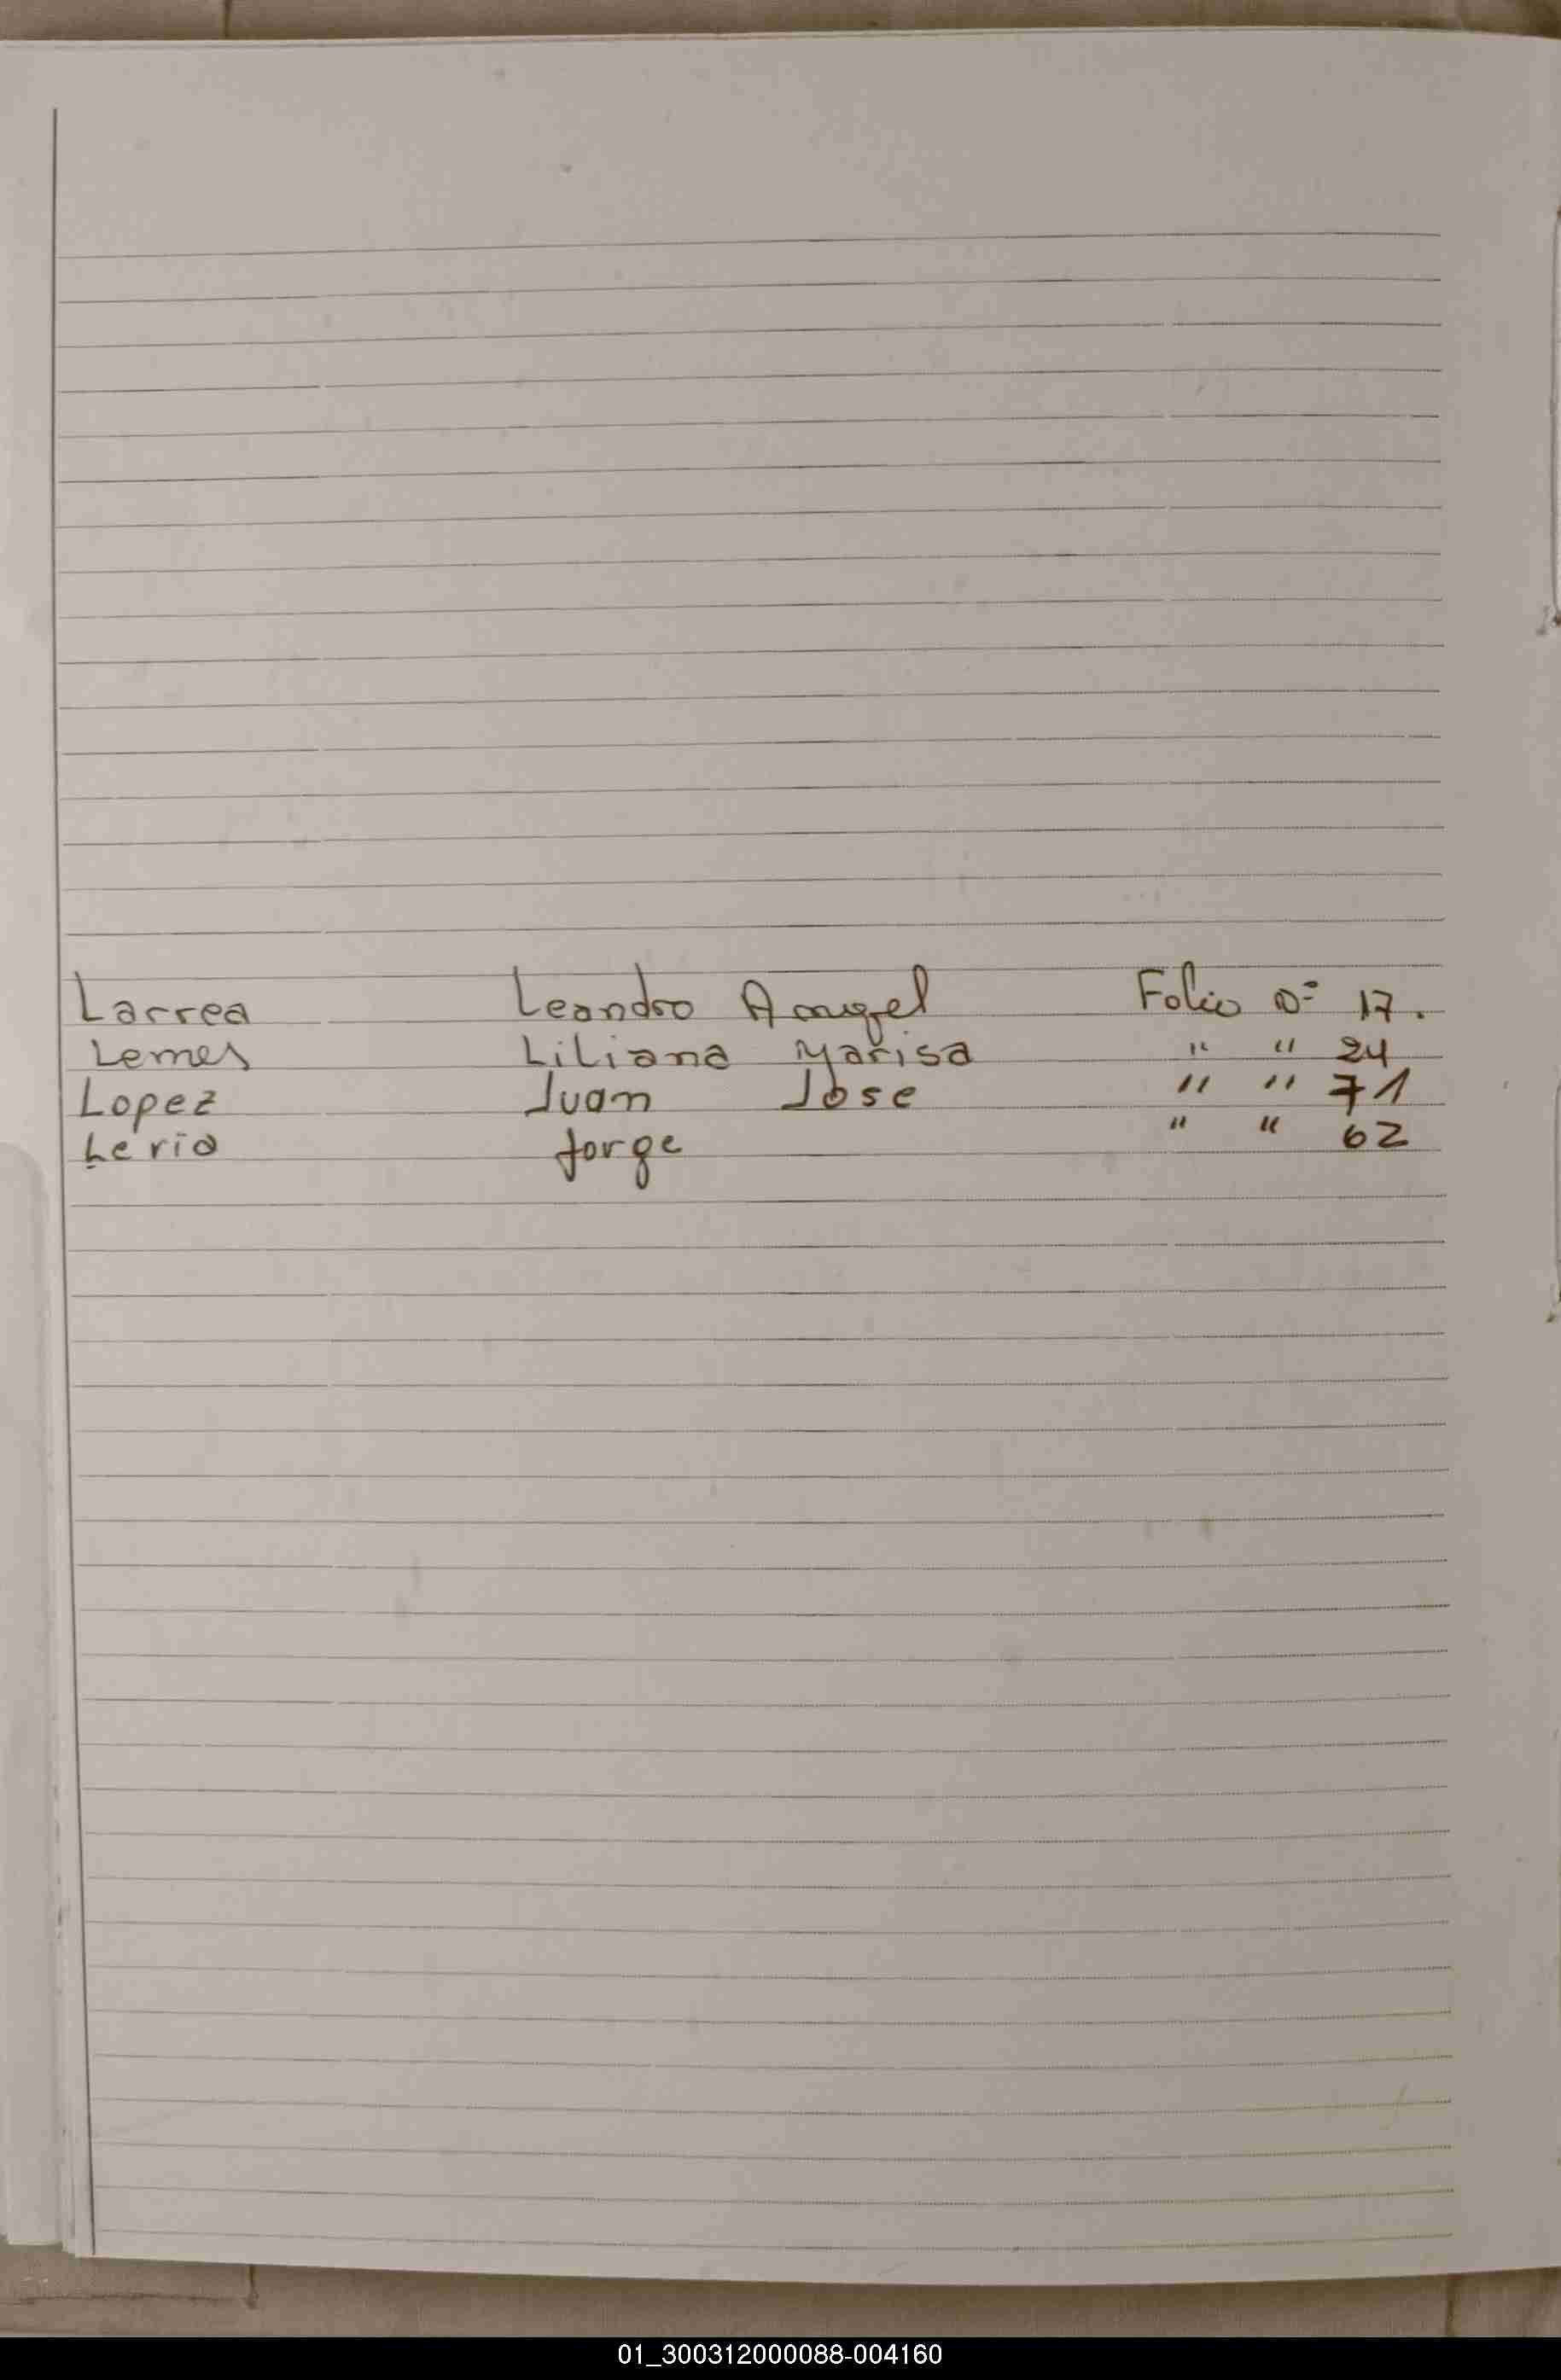 Larrea Leandro Angel Folio Nº 17.
Lemes Liliana Marisa " " 24
Lopez Juan Jose " " 71
Lerio Jorge " " 62
01_300312000088-004160